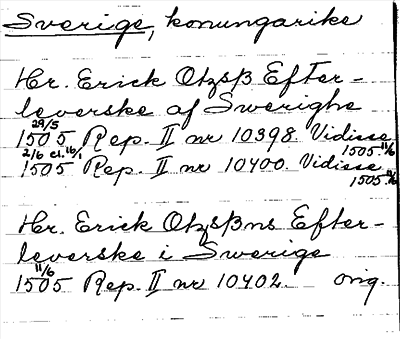 Sverige, konungarike
Hr. Erick Otzsß Efter-
leverske af Swerighe
29/5
1505 Rep. II nr 10398. Vidisse
1505 11/6
2/6 el. 16/1
1505 Rep. II nr 10400. Vidisse
1505 11/6
Hr. Erick Otzsßns Efter-
leverske i Swerige
11/6
1505 Rep. II nr 10402. orig.